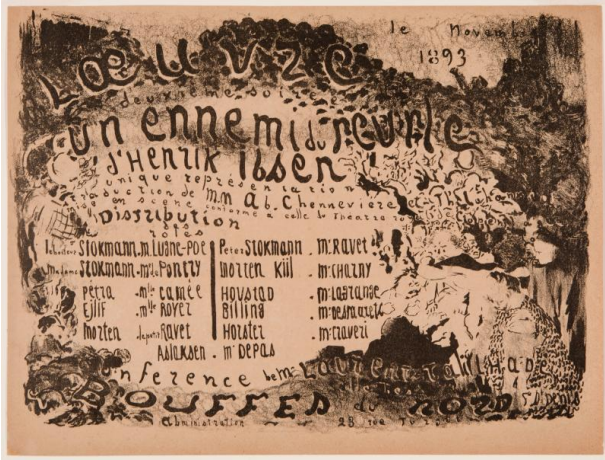 le Novembre
1893
L'ŒUVRE
deuxième soirée
un ennemi du peuple
d'Henrik Ibsen
unique représentation
traduction de mm Ad. Chennevière et
en scène conforme à celle du Théatre
Distribution
rôles
Stokmann. mr. Lugné-Poe
Madame Stokmann. mlle Pontry
Petra. mlle camée
Ejlif. mlle Royer
Morten. Ravet
Peter Stokmann. mr Ravet
Morten Kiil. mr charny
Hovstad. mr Lagrange
Billing.
Horster. mr
Aslaksen. mr Depas
conférence de mr Laurent Tailhade
BOUFFES du NORD
Administration 23 rue Turgot